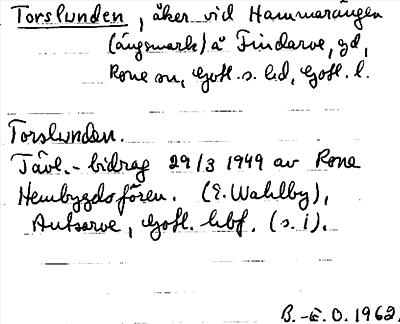 Torslunden, åker vid Hammarängen
(ängsmark) å Findarve, gd,
Rone sn, Gotl. s. hd, Gotl. l.
Torslunden.
Tävl.-bidrag 29/3 1949 av Rone
Hembygdsfören. (E. Wahlby),
Autsarve, Gotl. hbf. (s. 1).
B.-E. O. 1962.